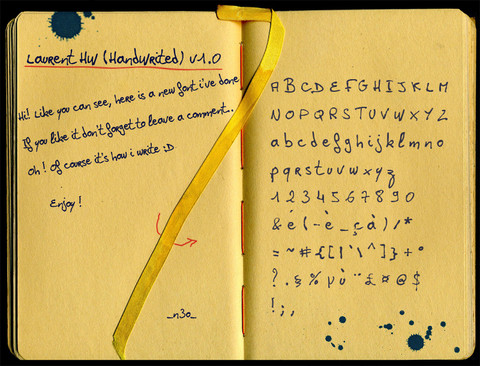 Laurent HW (Handwrited) v1.0
Hi! Like you can see, here is a new font i've done
If you like it don't forget to leave a comment..
Oh! Of course it's how i write :D
Enjoy!
_n3o_
ABCDEFGHIJKLM
NOPQRSTUVWXYZ
abcdefghijklmno
pqrstuvwxyz
1234567890
&é(-è_çà)/*
=~#{[|`\^]}+°
?.§%µù¨£¤@$
!;,